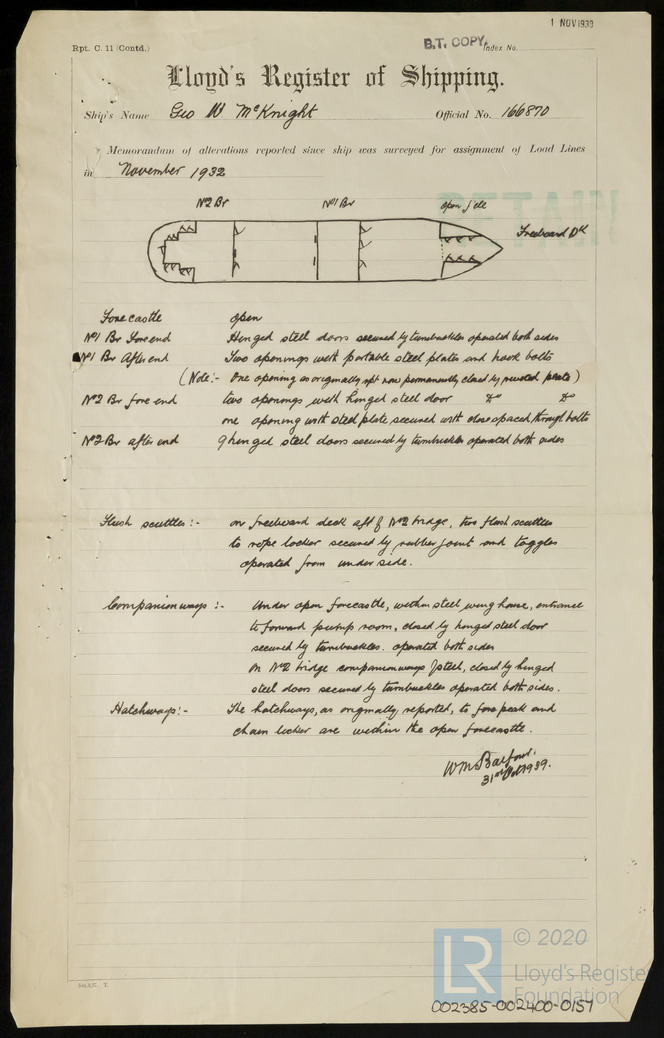 1 NOV 1939
Rpt. C. 11 (Contd.)
B.T. COPY. Index No.
Lloyd's Register of Shipping.
Ship's Name Geo W McKnight Official No. 166870
Memorandum of alterations reported since ship was surveyed for assignment of Load Lines
in November 1932
Nº2 Br Nº1 Br open f'cle
Freeboard Dk
Forecastle open
Nº1 Br Fore end Hinged steel doors secured by turnbuckles operated both sides
Nº1 Br After end Two openings with portable steel plates and hook bolts
(Note:- One opening as originally rpt now permanently closed by riveted plate)
Nº2 Br fore end two openings with hinged steel door do do
one opening with steel plate secured with close spaced through bolts
Nº2 Br after end 9 hinged steel doors secured by turnbuckles operated both sides
Flush scuttles:- on freeboard deck aft of Nº2 bridge, two flush scuttles
to rope locker secured by rubber joint and toggles
operated from under side.
Companionways:- Under open forecastle, within steel wing house, entrance
to forward pump room, closed by hinged steel door
secured by turnbuckles. operated both sides
On Nº2 bridge companionways of steel, closed by hinged
steel doors secured by turnbuckles operated both sides.
Hatchways:- The hatchways, as originally reported, to fore peak and
chain locker are within the open forecastle.
WM Balfour.
31st Oct 1939.
LR © 2020
Lloyd's Register
Foundation
002385-002400-0157